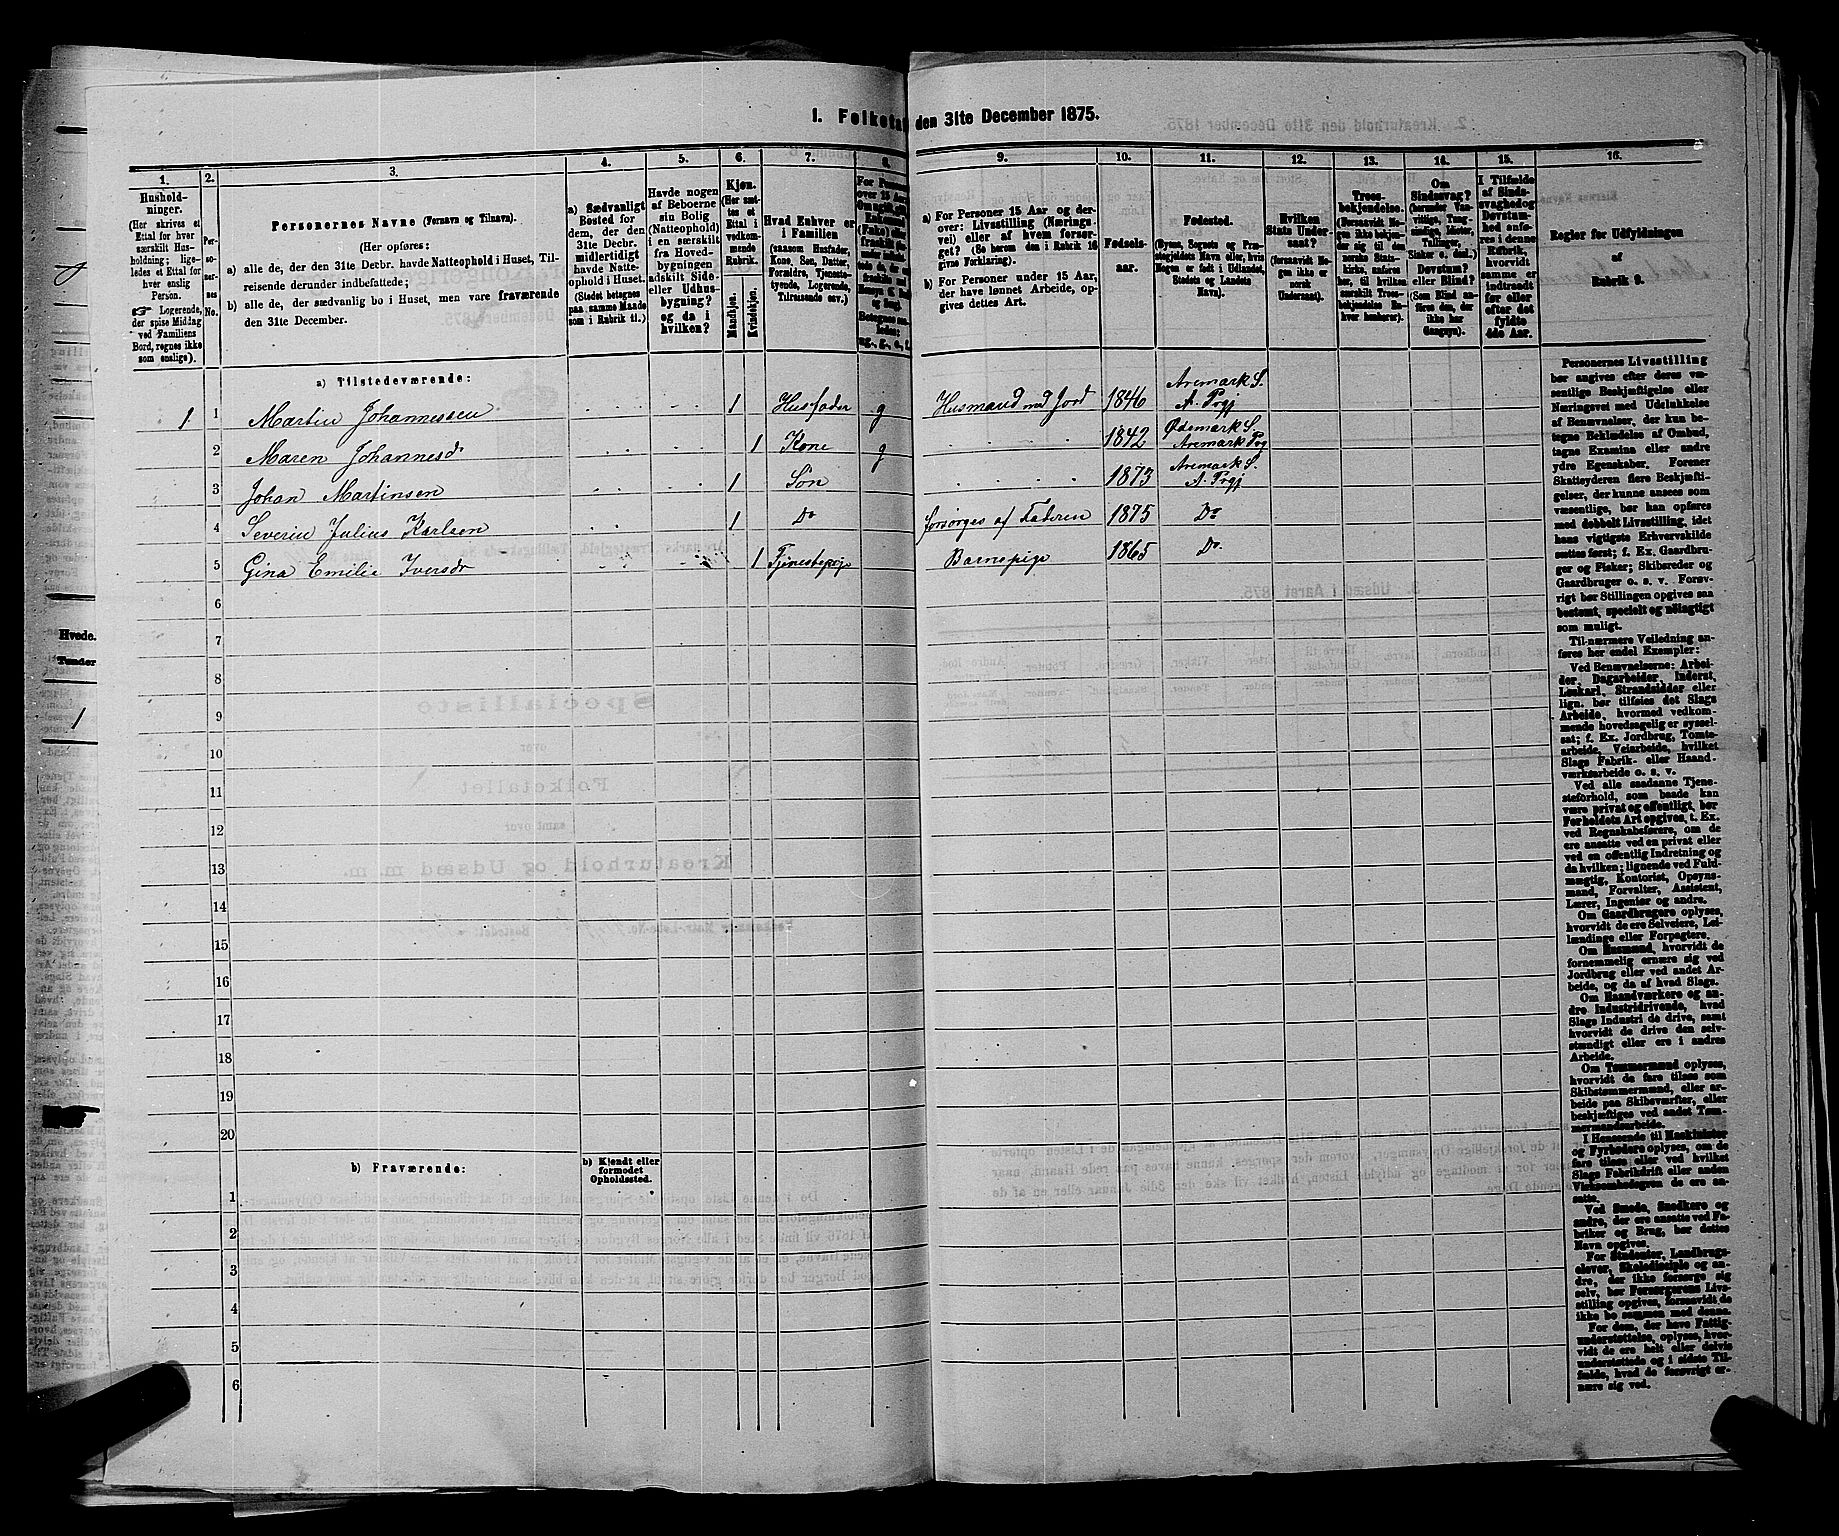 1. Folketal den 31te December 1875.
1.
2.
3.
4.
5.
6.
7.
8.
9.
10.
11.
12.
13.
14.
15.
16.
Husholdninger.
(Her skrives et Ettal for hver særskilt Husholdning; ligeledes et Ettal for hver enslig Person.
☞ Logerende, der spise Middag ved Familiens Bord, regnes ikke som enslige).
Personernes No.
Personernes Navne (Fornavn og Tilnavn).
(Her opføres:
a) alle de, der den 31te Decbr. havde Natteophold i Huset, Tilreisende derunder indbefattede;
b) alle de, der sædvanlig bo i Huset, men vare fraværende den 31te December.
a) Sædvanligt Bosted for dem, der den 31te Decbr. midlertidigt havde Natteophold i Huset.
(Stedet betegnes paa samme Maade som i Rubrik 11.)
Havde nogen af Beboerne sin Bolig (Natteophold) i en særskilt fra Hovedbygningen adskilt Side- eller Udhusbygning? og da i hvilken?
Kjøn.
(Her sættes et Ettal i vedkommende Rubrik.
Mandkjøn.
Kvindekjøn.
Hvad Enhver er i Familien
(saasom Husfader, Kone, Søn, Datter, Forældre, Tjenestetyende, Logerende, Tilreisende osv.)
a) For Personer 15 Aar og derover: Livsstilling (Næringsvei) eller af hvem forsørget? (Se herom den i Rubrik 16 givne Forklaring).
b) For Personer under 15 Aar, der have lønnet Arbeide, opgives dettes Art.
Fødselsaar.
Fødested.
(Byens, Sognets og Præstegjeldets Navn eller, hvis Nogen er født i Udlandet, Stedets og Landets Navn).
Hvilken Stats Undersaat?
(forsaavidt Nogen ikke er norsk Undersaat).
Troesbekjendelse.
(Forsaavidt Nogen ikke bekjender sig til den norske Statskirke, anføres her, til hvilken særskilt Troesbekjendelse Enhver henhører).
Om Sindssvag? (herunder Vanvittige, Tungsindige, Idioter, Tullinger, Sinker o. desl.) Døvstum? eller Blind?
(Som Blind anføres den, der ikke har Gangsyn).
I Tilfælde af Sindssvaghed og Døvstumhed anføres i denne Rubrik, hvorvidt samme er indtraadt før eller efter det fyldte 4de Aar.
Regler for Udfyldningen
af
Rubrik 9.
a) Tilstedeværende:
1 1 Martin Johannessen 1 Husfader g Husmand med Jord 1846 Aremark S. A. Prgj
2 Maren Johannesd. 1 Kone g 1842 Ødemark S. Aremark Prg
3 Johan Martinsen 1 Søn 1873 Aremark S. A. Prgj
4 Severin Julius Karlsen 1 Do forsørges af Faderen 1875 Do
5 Gina Emilie Iversdr 1 Tjenestepige Barnepige 1865 Do
6
7
8
9
10
11
12
13
14
15
16
17
18
19
20
b) Fraværende:
b) Kjendt eller formodet Opholdssted.
1
2
3
4
5
6
Personernes Livsstilling bør angives efter deres væsentlige Beskjæftigelse eller Næringsvei med Udelukkelse af Benævnelser, der kun betegne Beklædelse af Ombud, tagne Examina eller andre ydre Egenskaber. Forener Skatteyderen flere Beskjæftigelser, der kunne ansees som væsentlige, bør han opføres med dobbelt Livsstilling, idet hans vigtigste Erhvervskilde sættes først; f. Ex. Gaardbruger og Fisker; Skibsreder og Gaardbruger o. s. v. Forøvrigt bør Stillingen opgives saa bestemt, specielt og nøiagtigt som muligt.
Til nærmere Veiledning anføres her endel Exempler:
Ved Benævnelserne: Arbeider, Dagarbeider, Inderst, Løskarl, Strandsidder eller lign. bør tilføies det Slags Arbeide, hvormed vedkommende hovedsagelig er sysselsat; f. Ex. Jordbrug, Tomtearbeide, Veiarbeide, hvilket Slags Fabrik- eller Haandværksarbeide o. s. v.
Ved alle saadanne Tjenesteforhold, som baade kan være privat og offentligt, bør Forholdets Art opgives, t. Ex. ved Regnskabsførere, om de ere ansatte ved en privat eller ved en offentlig Indretning og da hvilken; lignende ved Fuldmægtig, Kontorist, Opsynsmand, Forvalter, Assistent, Lærer, Ingeniør og andre.
Om Gaardbrugere oplyses, hvorvidt de ere Selveiere, Leilændinge eller Forpagtere.
Om Husmænd, hvorvidt de fornemmelig ernære sig ved Jordbrug eller ved andet Arbeide, og da af hvad Slags.
Om Haandværkere og andre Industridrivende, hvad Slags Industri de drive, samt hvorvidt de drive den selvstændigt eller ere i andres Arbeide.
Om Tømmermænd oplyses, hvorvidt de fare tilsøs som Skibstømmermænd, eller arbeide paa Skibsværfter, eller beskjæftiges ved andet Tømmermandsarbeide.
I Henseende til Maskinister og Fyrbødere oplyses, om de fare tilsøs eller ved hvilket Slags Fabrikdrift eller anden Virksomhedsgren de ere ansatte.
Ved Smede, Snedkere og andre, der ere ansatte ved Fabriker og Brug, bør dettes Navn opgives.
For Studenter, Landbrugselever, Skoledisciple og andre, der ikke forsørge sig selv, bør Forsørgerens Livsstilling opgives, forsaavidt de ikke bo sammen med denne.
For dem, der have Fattigunderstøttelse, oplyses, hvorvidt de ere helt eller delvis understøttede og i sidste Tilfælde, hvad de forøvrigt ernære sig ved.
Hvede.
Tønder
1